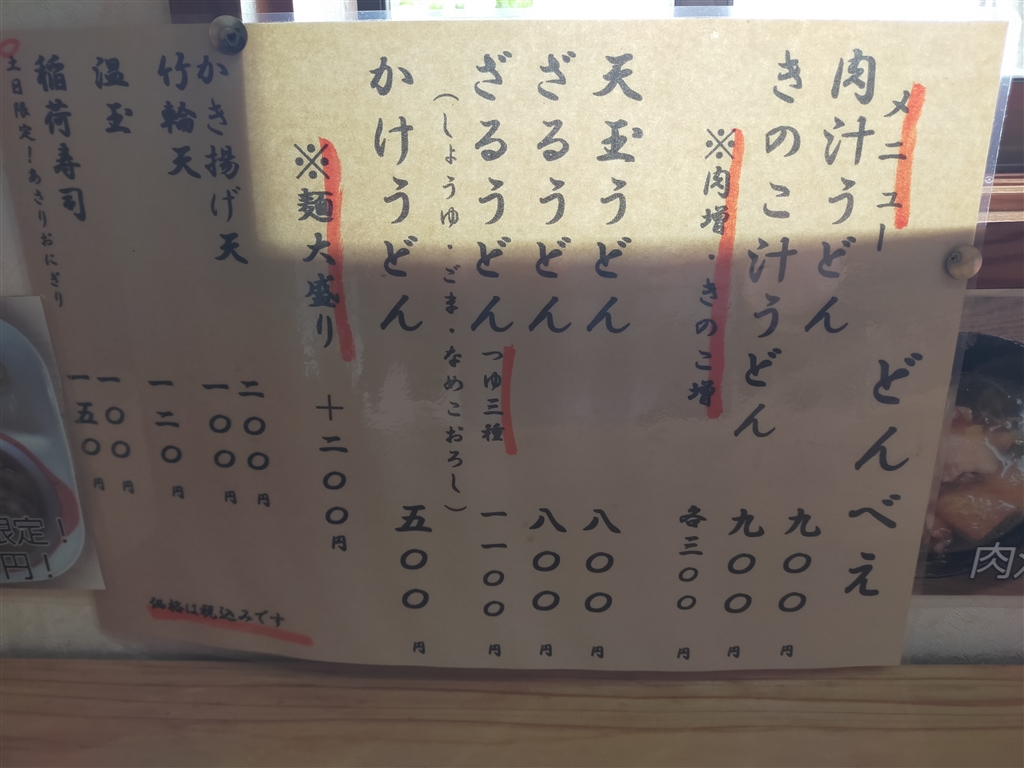 メニュー
どんべえ
肉汁うどん 九〇〇円
きのこ汁うどん 九〇〇円
※肉増・きのこ増 各三〇〇円
天玉うどん 八〇〇円
ざるうどん 八〇〇円
ざるうどん つゆ三種 一一〇〇円
(しょうゆ・ごま・なめこおろし)
かけうどん 五〇〇円
※麺大盛り 十二〇〇円
かき揚げ天 二〇〇円
竹輪天 一〇〇円
温玉 一二〇円
稲荷寿司 一〇〇円
土日限定!あさりおにぎり 一五〇円
価格は税込みです
限定!
円!
肉